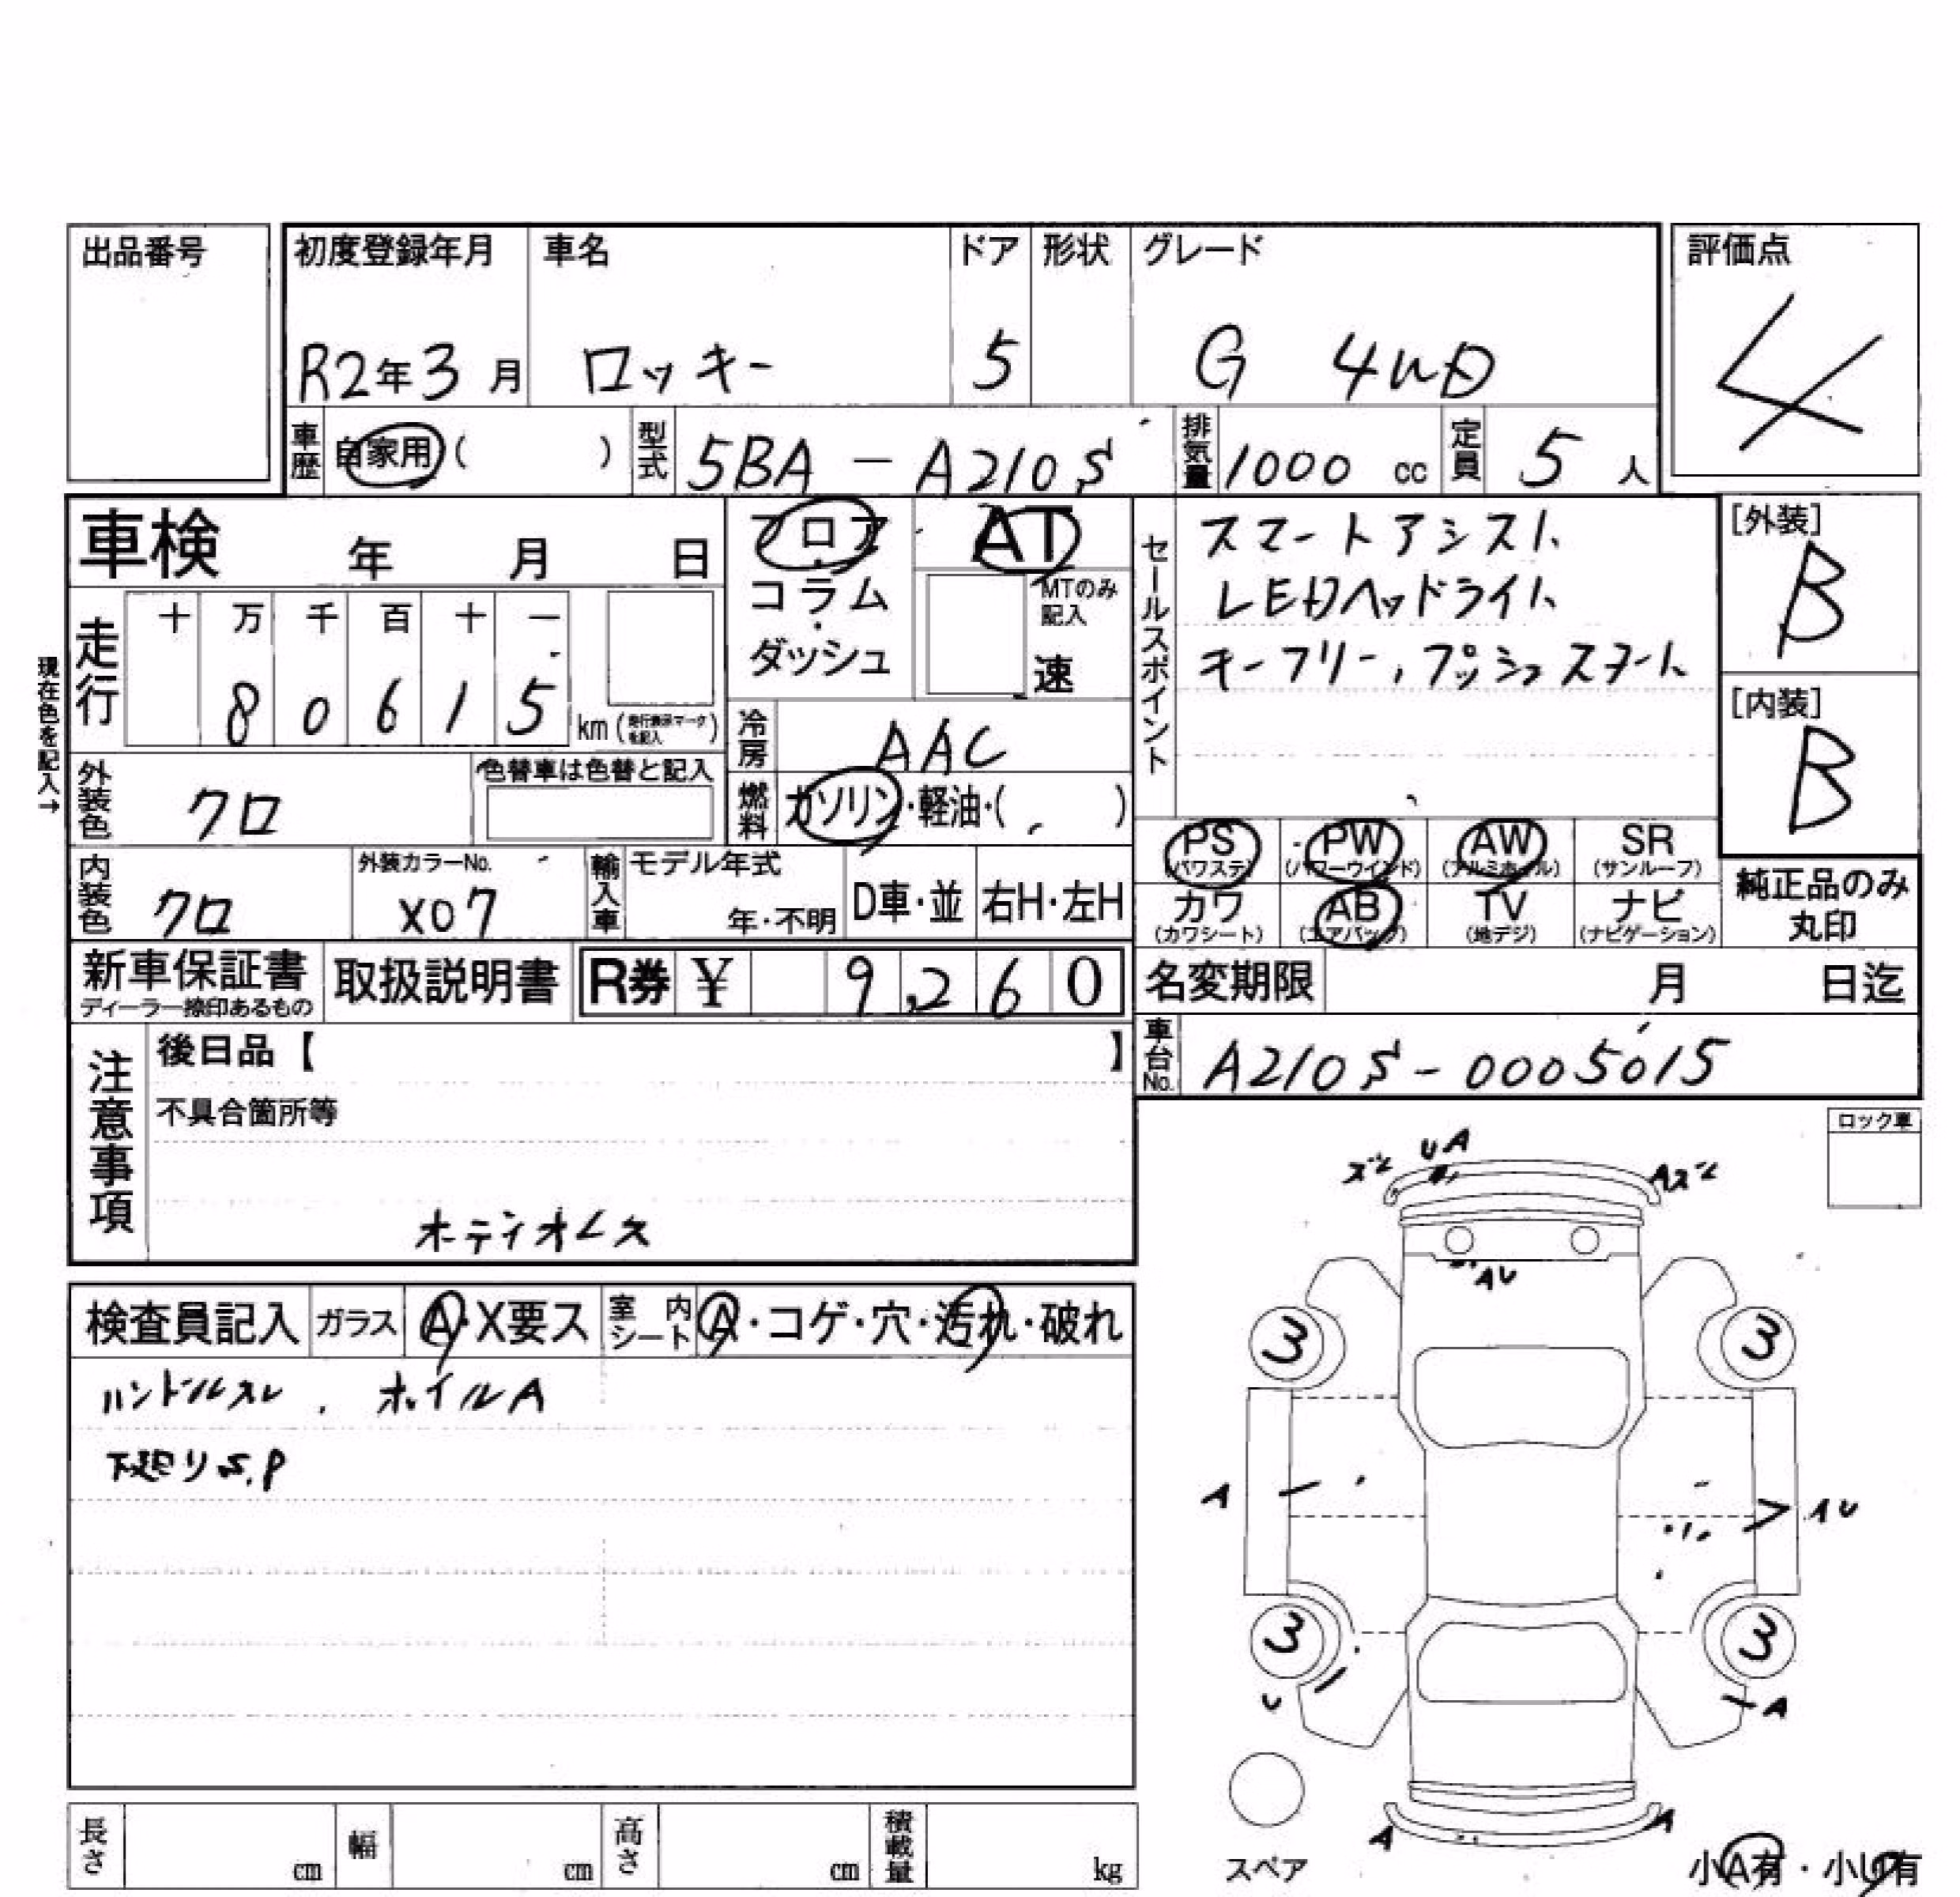 出品番号
初度登録年月 車名 ドア 形状 グレード 評価点
R2年3月 ロッキー 5 G 4WD 4
車歴 自家用( ) 型式 5BA-A210S 排気量 1000 cc 定員 5 人
車検 年 月 日
フロア・コラム・ダッシュ
AT
MTのみ記入
速
セールスポイント
スマートアシスト
LEDヘッドライト
キーフリー,プッシュスタート
[外装]
B
[内装]
B
現在色を記入→
走行 十 万 千 百 十 一
8 0 6 1 5 km(走行表示マークを記入)
冷房 AAC
燃料 ガソリン・軽油・( )
外装色 クロ
色替車は色替と記入
内装色 クロ
外装カラーNo.
X07
輸入車 モデル年式
年・不明 D車・並 右H・左H
PS (パワステ) PW (パワーウインド) AW (アルミホイル) SR (サンルーフ)
カワ (カワシート) AB (エアバッグ) TV (地デジ) ナビ (ナビゲーション)
純正品のみ
丸印
新車保証書
ディーラー捺印あるもの
取扱説明書 R券 ¥ 9,260
名変期限 月 日迄
車台No. A210S-0005015
注意事項
後日品【 】
不具合箇所等
オーディオレス
ロック車
検査員記入 ガラス A・X要ス 室内シート A・コゲ・穴・汚れ・破れ
ハンドルスレ. ホイルA
下廻りS.P
ズレ UA Aズレ
AU
3 3
A AU
3 3
U A
A A
スペア
小A有・小U有
長さ cm 幅 cm 高さ cm 積載量 kg